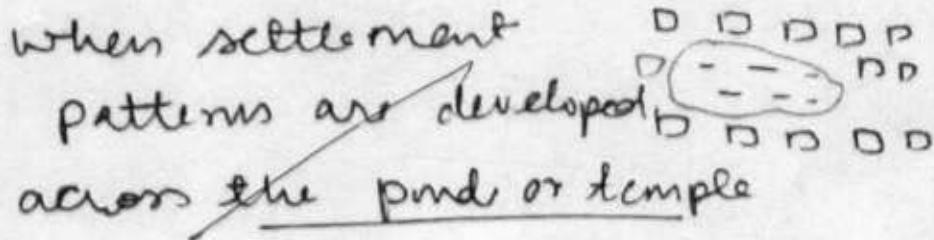 when settlement
patterns are developed
across the pond or temple